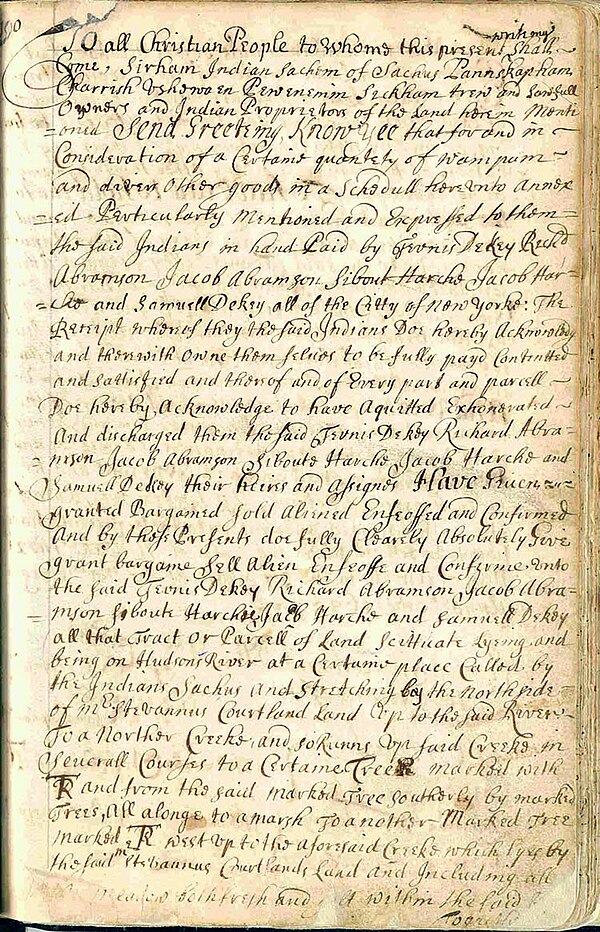 writing
To all Christian People to whome this present Shall
Come, Sirham Indian Sachem of Sachus Pannskapham
Charrish Vshowaen Pewenemm Sickham trew and Lawfull
Owners and Indian Proprietors of the Land herein Menti
=oned Send Greeteing Know Yee that for and in
Consideration of a Certaine quantety of wampum
and divers Other goods in a Schedull hereunto Annex
=ed Perticularly Mentioned and Expressed to them
the said Indians in hand Paid by Tevnis Dekey Rich'd
Abramson Jacob Abramson Sibout Harche Jacob Har=
=che and Samuell Dekey all of the Citty of New Yorke: The
Receipt wherof they the said Indians Doe hereby Acknowledg
and therwith Owne them selves to be fully payd Contented
and sattisfied and thereof and of Every part and parcell
Doe hereby, Acknowledge to have Aquitted Exhonerated
And discharged them the said Tevnis Dekey Richard Abra=
=mson Jacob Abramson Siboute Harche Jacob Harche and
Samuell Dekey their heires and assignes Have Given
granted Bargamed sold Aliened Enfeossed and Confirmed
And by these Presents doe fully Clearely Absolutely Give
grant bargame sell Alien Enfeosse and Confirme vnto
the said Tevnis Dekey Richard Abramson, Jacob Abra=
=mson Siboute Harche Jacob Harche and Samuell Dekey
all that Tract Or Parcell of Land Scittuate Lyeing and
being on Hudsons River at a Certaine place Called by
the Indians Sachus And Stretching by the North side
of mr Stevannus Courtland Land Vp to the said River
To a Norther Creeke, and so Runns Vp said Creeke in
Severall Courses to a Certame Tree marked with
TR And from the said marked Tree Southerly by marked
Trees, All alonge to a marsh To another Marked Tree
marked TR west Vp to the aforesaid Creeke which lyes by
the said mr Stevannus Courtlands Land and Including all
meadow both fresh and within the said